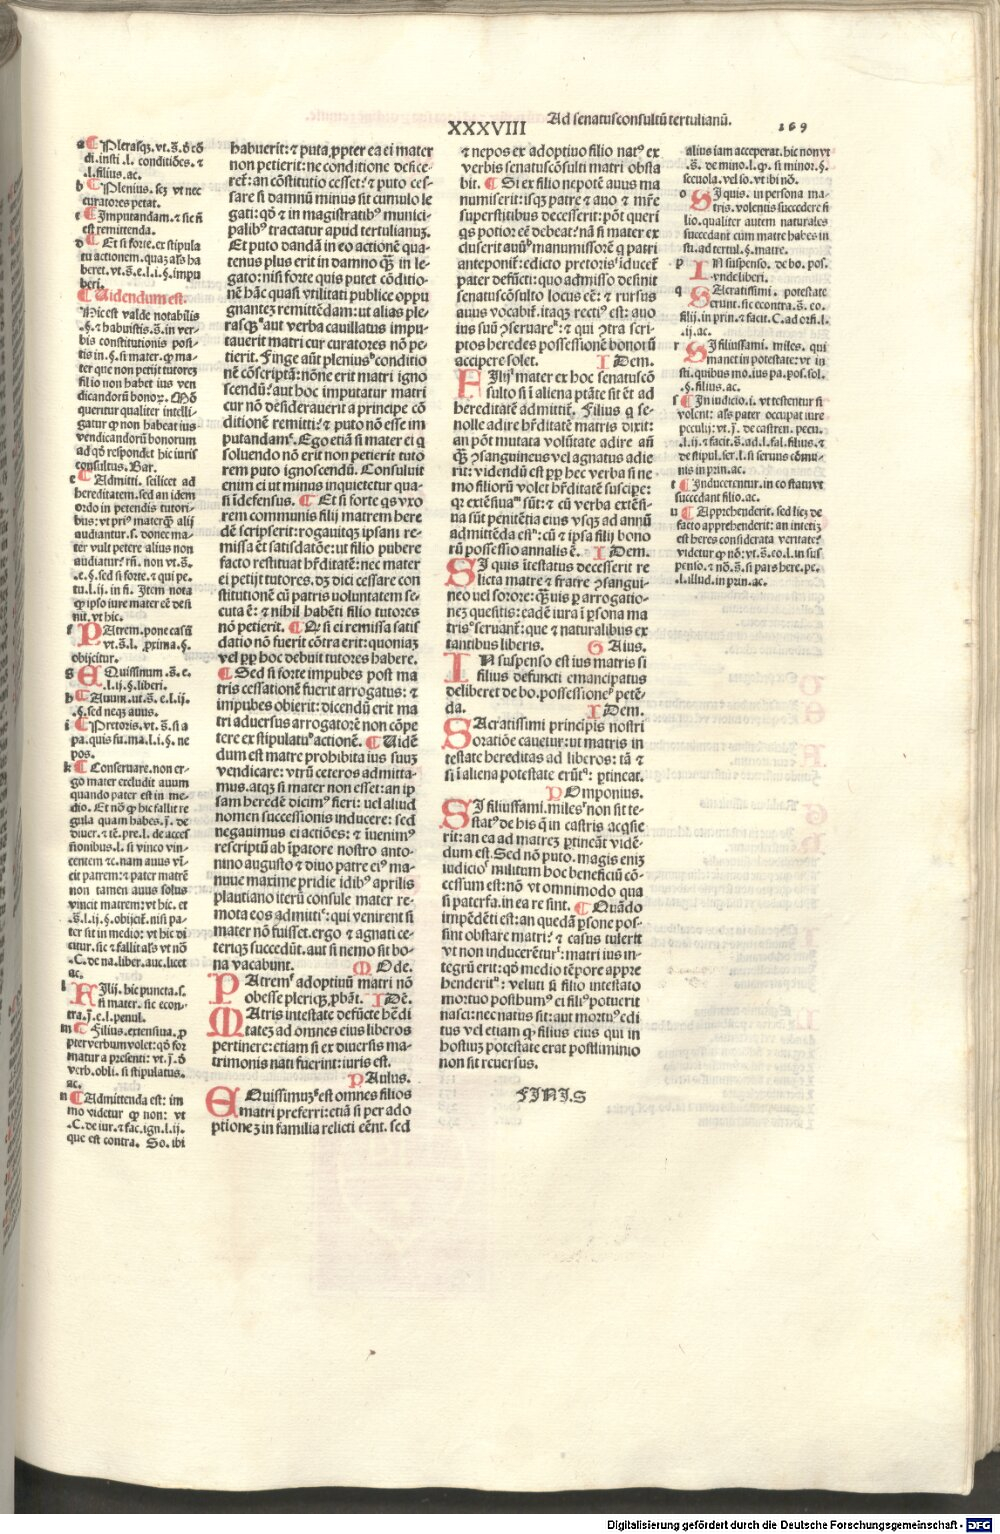 XXXVIII
Ad senatusconsultū tertulianū.
169
a ¶ Plerasqꝫ. vt. s̄. ð cō
di. insti. l. conditiōes. ⁊
.l. filius. ac.
b ¶ Plenius. scꝫ vt nec
curatores petat.
c ¶ Imputandam. ⁊ sic ñ
est remittenda.
d ¶ Et si forte. ex stipula
tu actionem. quaꝫ aľs ha
beret. vt. s̄. e. l. i. §. impu
beri.
¶ Uidendum est.
Hic est valde notabilis
.§. ⁊ habuistis. s̄. in ver-
bis constitutionis post
tis in. §. si mater. ꝙ ma-
ter que non petijt tutoreꝫ
filio non habet ius ven
dicandorū bonoꝝ. Mō
queritur qualiter intelli-
gatur ꝙ non habeat ius
vendicandorū bonorum
ad qð respondet hic iuris
consultus. Bar.
e ¶ Admitti. scilicet ad
hereditatem. sed an idem
ordo in petendis tutori-
bus: vt priꝰ materqꝫ alij
audiantur. s. donec ma-
ter vult petere alius non
audiatur? rñ. non vt. s̄.
.e. §. sed si forte. ⁊ qui pe-
tu. l. ij. in fi. Item nota
ꝙ ipso iure mater eē desi
nit. vt hic.
f PAtrem. pone casū
vt. s̄. l. ꝓxima. §.
obijcitur.
g EQuissimum. s̄. e.
.l. ij. §. liberi.
h ¶ Auum. ut. s̄. e. l. ij.
.§. sed neqꝫ auus.
i ¶ Pretoris. vt. s̄. si a
pa. quis fu. ma. l. i. §. ne
pos.
k ¶ Conseruare. non er-
go mater excludit auum
quando pater est in me-
dio. Et nō ꝙ hic fallit re
gula quam habes. j̄. de
diuer. ⁊ tē. pre. l. de acces
sionibus. l. si vinco vin-
centem ⁊c. nam auus vī-
cit patrem: ⁊ pater matrē
non tamen auus solus
vincit matrem: vt hic. et
.s̄. l. ij. §. obijcit. nisi pa-
ter sit in medio: vt hic di
citur. sic ⁊ fallit aľs vt nō
.C. de na. liber. auc. licet
ac.
l FIlij. hic puncta. s.
si mater. sic econ-
tra. j̄. e. l. penul.
m ¶ Filius. extensiua. ꝓ
pter verbum volet: qð for
matur a presenti: vt. j̄. ð
verb. obli. si stipulatus.
ac.
n ¶ Admittenda est: im
mo videtur ꝙ non: vt
.C. de iur. ⁊ fac. ign. l. ij.
que est contra. So. ibi
habuerit: ⁊ puta ꝓpter ea ei mater
non petierit: ne conditione defice-
ret: an cōstitutio cesset? ⁊ puto ces-
sare si damnū minus sit cumulo le
gati: qð ⁊ in magistratibꝰ munici-
palibꝰ tractatur apud tertulianuꝫ.
Et puto dandā in eo actionē qua-
tenus plus erit in damno qꝫ in le-
gato: nisi forte quis putet cōditio-
nē hāc quasi vtilitati publice oppu
gnanteꝫ remittēdam: ut alias ple-
rasqꝫ aut verba cauillatus impu-
tauerit matri cur curatores nō pe-
tierit. Finge aūt pleniusᵇ conditio
nē cōscriptā: nōne erit matri igno
scendū? aut hoc imputatur matri
cur nō desiderauerit a principe cō
ditionē remitti? ⁊ puto nō esse im
putandamᶜ. Ego etiā si mater ei q
soluendo nō erit non petierit tuto
rem puto ignoscendū. Consuluit
enim ei ut minus inquietetur qua-
si īdefensus. ¶ Et si forte qs vxo
rem communis filij matrem here
dē scripserit: rogauitqꝫ ipsam re-
missa ēt satisdatōe: ut filio pubere
facto restituat hr̄ditatē: nec mater
ei petijt tutores. dꝫ dici cessare con
stitutionē cū patris voluntatem se-
cuta ē: ⁊ nihil habēti filio tutores
nō petierit. ¶ Qð si ei remissa satis
datio nō fuerit cōtra erit: quoniaꝫ
vel ꝓp̄ hoc debuit tutores habere.
¶ Sed si forte impubes post ma
tris cessationē fuerit arrogatus: ⁊
impubes obierit: dicendū erit ma
tri aduersus arrogatorē non cōpe
tere ex stipulatuᵈ actionē. ¶ Uidē
dum est matre prohibita ius suuꝫ
vendicare: vtrū ceteros admitta-
mus. atqꝫ si mater non esset: an ip
sam heredē dicimꝰ fieri: uel aliud
nomen successionis inducere: sed
negauimus ei actiōes: ⁊ īuenimꝰ
rescriptū ab īpatore nostro anto-
nino augusto ⁊ diuo patre eiꝰ ma-
nuue maxime pridie idibꝰ aprilis
plautiano iterū consule mater re-
mota eos admitiᵉ: qui venirent si
mater nō fuisset. ergo ⁊ agnati ce-
teriqꝫ succedūt. aut si nemo sit bo-
na vacabunt. MOde.
PAtremᶠ adoptiuū matri nō
obesse pleriqꝫ ꝓbāt. IDē.
MAtris intestate defūcte hr̄edi
tateꝫ ad omnes eius liberos
pertinere: etiam si ex diuersis ma-
trimonis nati fuerint: iuris est.
PAulus.
EQuissimuꝫᵍ est omnes filios
matri preferri: etiā si per ado
ptioneꝫ in familia relicti eēnt. sed
⁊ nepos ex adoptiuo filio natꝰ ex
verbis senatuscōsulti matri obsta
bit. ¶ Si ex filio nepotē auus ma
numiserit: isqꝫ patre ⁊ auo ⁊ mr̄e
superstitibus decesserit: pōt queri
qs potior eē debeat? nā si mater ex
cluserit auūʰ manumissorē q patri
anteponiť: edicto pretorisⁱ īduceť
pater defūcti: quo admisso desinit
senatuscōsulto locus eē: ⁊ rursus
auus vocabiť. itaqꝫ rectiꝰ est: auo
ius suū ꝯseruareᵏ: ⁊ qui ꝯtra scri-
ptos heredes possessionē bonorū
accipere solet. IDem.
FIlijˡ mater ex hoc senatuscō
sulto si ī aliena ptāte sit ēt ad
hereditatē admittiť. Filius q se-
nolle adire hr̄ditatē matris dixit:
an pōt mutata volūtate adire añ
qꝫ ꝯsanguineus vel agnatus adie
rit: videndū est ꝓp̄ hec verba si ne
mo filiorū volet hr̄ditatē suscipe:
qꝛ extēsiuaᵐ sūt: ⁊ cū verba extēsi-
ua sūt penitētia eius vsqꝫ ad annū
admittēda estⁿ: cū ⁊ ipsa filij bono
rū possessio annalis ē. IDem.
SI quis ītestatus decesserit re
licta matre ⁊ fratre ꝯsangui-
neo vel sorore: qꝫuis ꝑ arrogatio-
neꝫ quesitis: eadē iura ī ꝑsona ma
trisᵒ seruant: que ⁊ naturalibus ex
tantibus liberis. GAius.
IN suspenso est ius matris si
filius defuncti emancipatus
deliberet de bo. possessioneᵖ petē-
da. IDem.
SAcratissimi principis nostri
oratiōe cauetur: ut matris in
testate hereditas ad liberos: tā ⁊
si ī aliena potestate erūtᑫ: ꝑtineat.
POmponius.
SI filiusfami. milesʳ non sit te-
statꝰ de his q̄ in castris acqsie
rit: an ea ad matreꝫ ꝑtineāt vidē-
dum est. Sed nō puto. magis eniꝫ
iudicioˢ militum hoc beneficiū cō-
cessum est: nō vt omnimodo qua
si paterfa. in ea re sint. ¶ Quādo
impēdēti est: an quedā ꝑsone pos-
sint obstare matri? ⁊ casus tulerit
vt non inducerēturᵗ: matri ius in-
tegrū erit: qð medio tēpore appre
henderitᵘ: veluti si filio intestato
mortuo posthumꝰ ei filiꝰ potuerit
nasci: nec natus sit: aut mortuꝰ edi
tus vel etiam ꝙ filius eius qui in
hostiuꝫ potestate erat postliminio
non sit reuersus.
FINIS
alius iam acceperat. hic non vt
.s̄. de mino. l. ꝙ. si minor. §.
sceuola. vel so. vt ibi nō.
o SI quis. in persona ma-
tris. volentis succedere fi
lio. qualiter autem naturales
succedant cum matre habes in
sti. ad tertul. §. matre.
p IN suspenso. de bo. pos.
vnde liberi.
q SAcratissimi. potestate
erunt. sic econtra. s̄. eo.
filij. in prin. ⁊ facit. C. ad orfi. l.
.ij. ac.
r SI filiusfami. miles. qui
manet in potestate: vt in
sti. quibus mo. ius pa. pos. sol.
.§. filius. ac.
s ¶ In iudicio. i. vt testentur si
volent: aľs pater occupat iure
peculij: vt. j̄. de castren. pecu.
.l. ij. ⁊ facit. s̄. ad. l. fal. filius. ⁊
de stipul. ser. l. si seruus cōmu-
nis in prin. ac.
t ¶ Inducerentur. in eo statu vt
succedant filio. ac.
u ¶ Apprehenderit. sed licꝫ de
facto apprehenderit: an inteꝫ
est heres considerata veritate?
videtur ꝙ nō: vt. s̄. eo. l. in sus
penso. ⁊ nō. s̄. si pars here. pe.
.l. illud. in prin. ac.
Digitalisierung gefördert durch die Deutsche Forschungsgemeinschaft - DFG